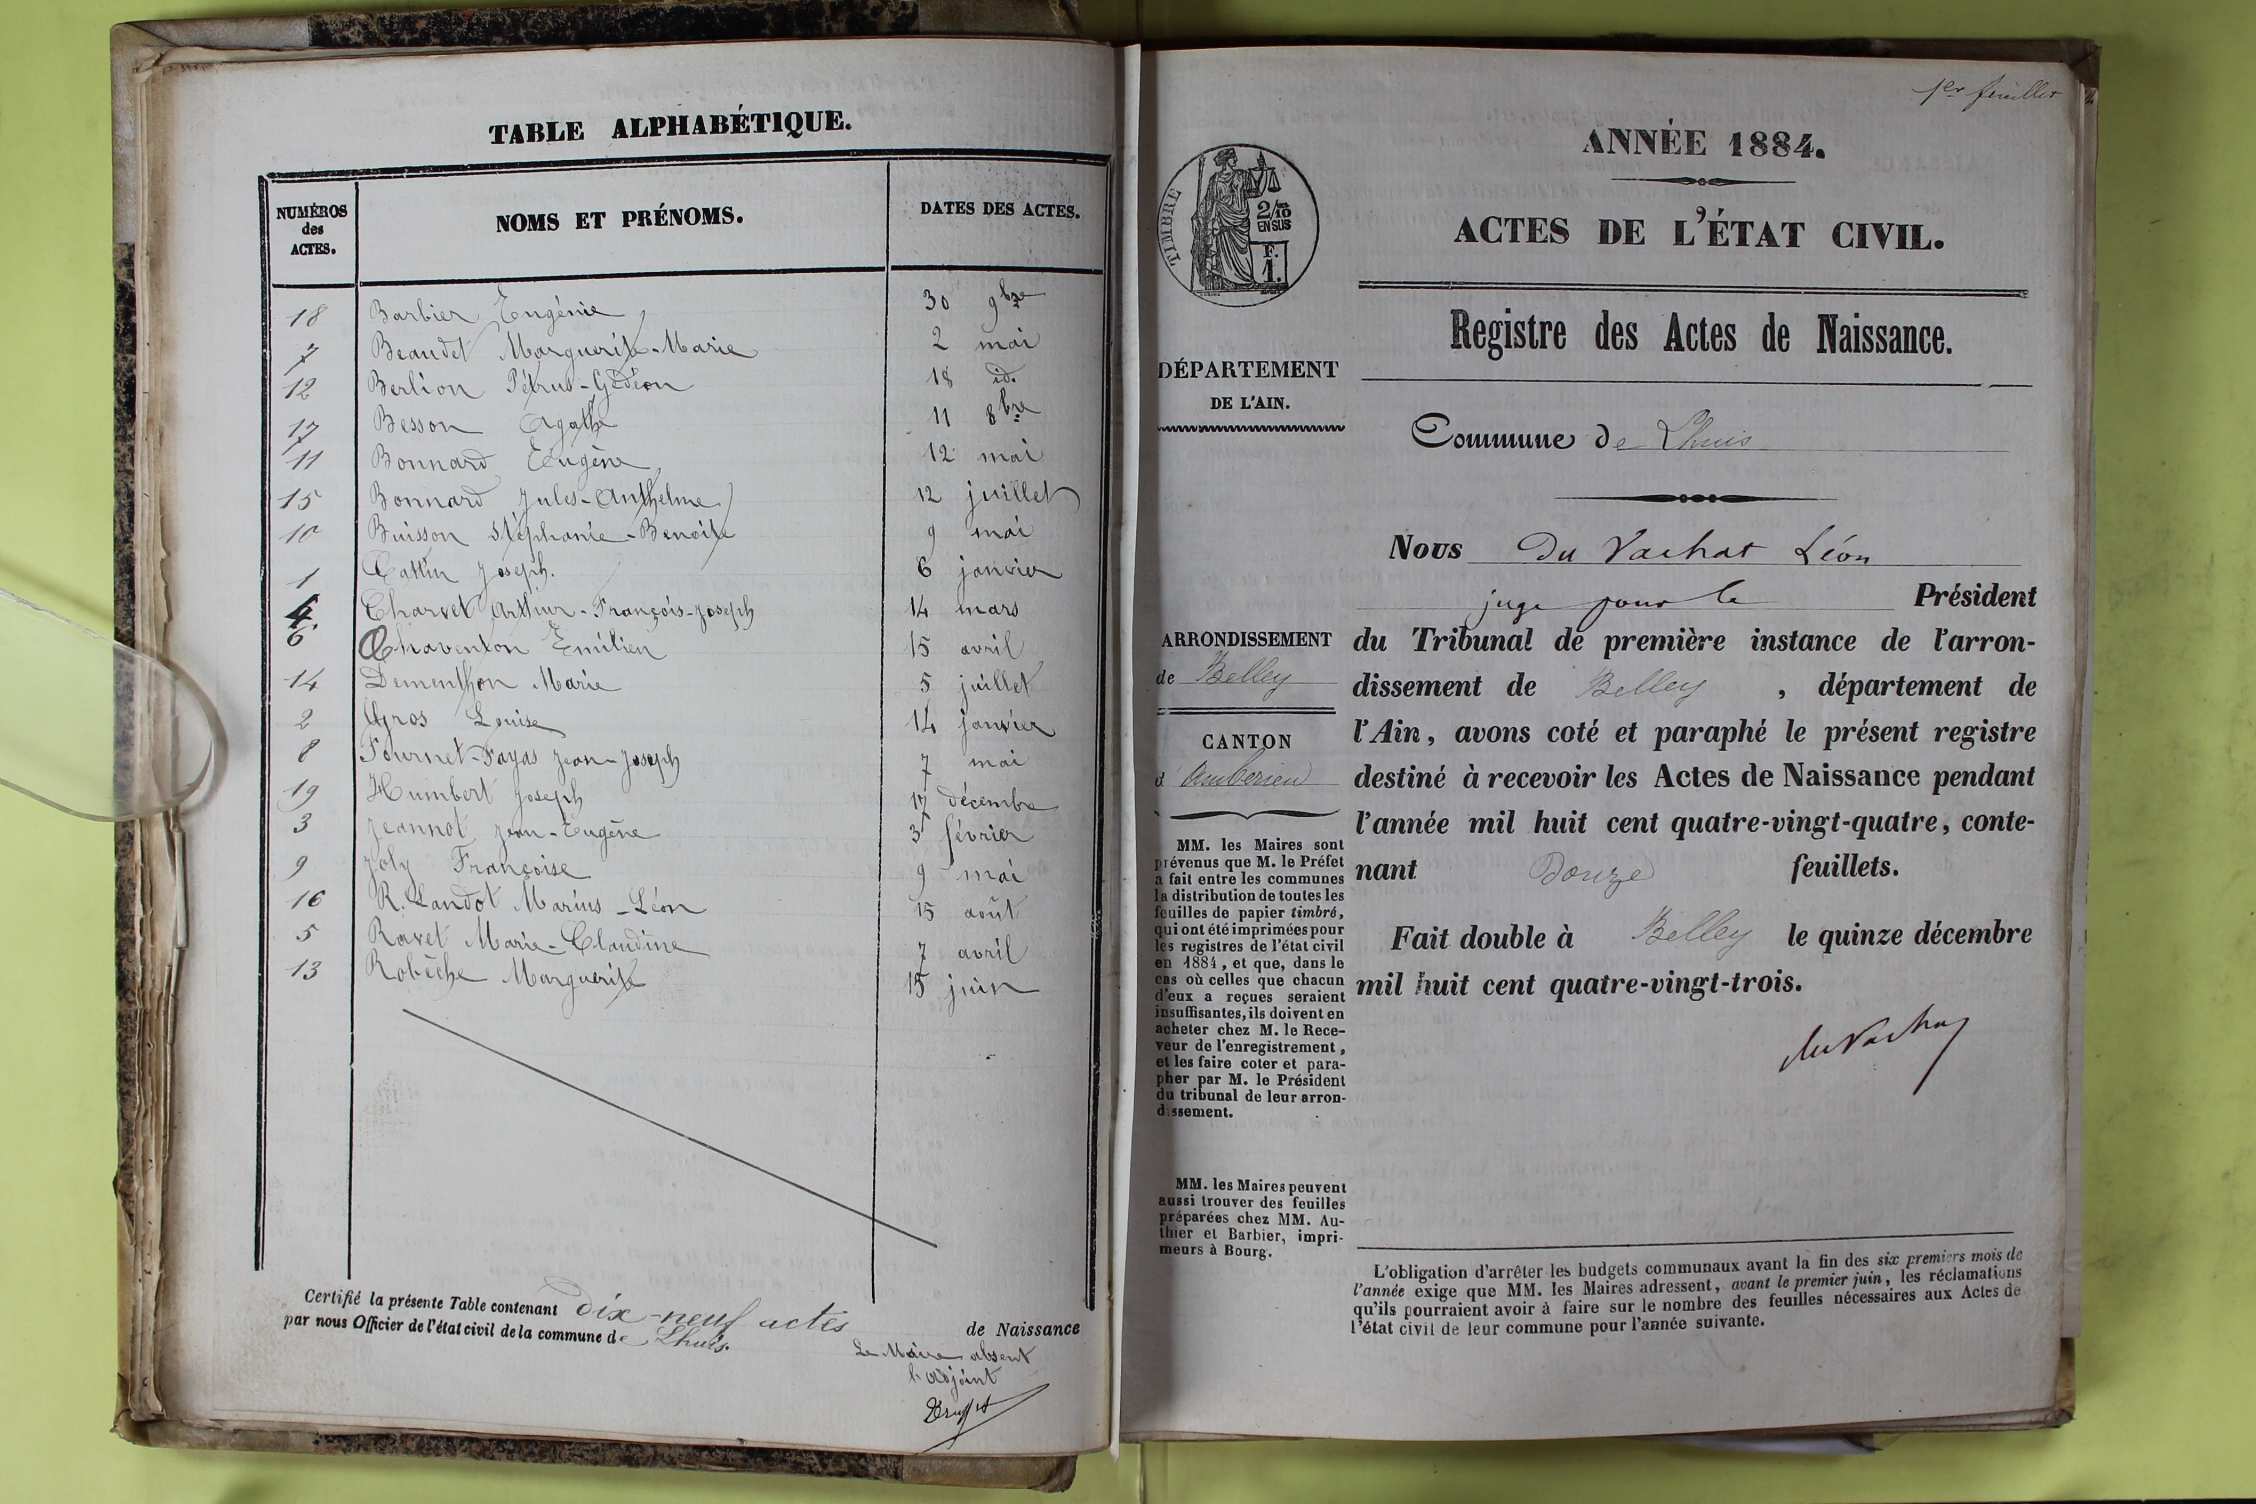 TABLE ALPHABÉTIQUE.
NUMÉROS des ACTES. NOMS ET PRÉNOMS. DATES DES ACTES.
18 Barbier Eugénie 30 9bre
7 Beaudet Marguerite-Marie 2 mai
12 Berlion Pétrus-Gédéon 18 id.
17 Besson Agathe 11 8bre
11 Bonnard Eugène 12 mai
15 Bonnard Jules-Anthelme 12 juillet
10 Buisson Stéphanie-Benoite 9 mai
1 Cattin Joseph. 6 janvier
4 Charvet Arthur-François-Joseph 14 mars
6 Chaventon Emilien 15 avril
14 Dementhon Marie 5 juillet
2 Gros Louise 14 janvier
8 Fournet-Fayas Jean-Joseph 7 mai
19 Humbert Joseph 17 décembre
3 Jeannot Jean-Eugène 3 février
9 Joly Françoise 9 mai
16 R. Landot Marius-Léon 15 août
5 Ravet Marie-Claudine 7 avril
13 Robèche Marguerite 15 juin
Certifié la présente Table contenant dix-neuf actes de Naissance
par nous Officier de l'état civil de la commune de Lhuis.
Le Maire absent
l'adjoint
1er feuillet
ANNÉE 1884.
ACTES DE L'ÉTAT CIVIL.
TIMBRE
2/10
EN SUS
F.
1.
Registre des Actes de Naissance.
DÉPARTEMENT
DE L'AIN.
Commune de Lhuis
ARRONDISSEMENT
de Belley
CANTON
d'Ambérieu
MM. les Maires sont
prévenus que M. le Préfet
a fait entre les communes
la distribution de toutes les
feuilles de papier timbré,
qui ont été imprimées pour
les registres de l'état civil
en 1884, et que, dans le
cas où celles que chacun
d'eux a reçues seraient
insuffisantes, ils doivent en
acheter chez M. le Rece-
veur de l'enregistrement,
et les faire coter et para-
pher par M. le Président
du tribunal de leur arron-
dissement.
MM. les Maires peuvent
aussi trouver des feuilles
préparées chez MM. Au-
thier et Barbier, impri-
meurs à Bourg.
Nous Du Vachat Léon
juge pour le Président
du Tribunal de première instance de l'arron-
dissement de Belley, département de
l'Ain, avons coté et paraphé le présent registre
destiné à recevoir les Actes de Naissance pendant
l'année mil huit cent quatre-vingt-quatre, conte-
nant Douze feuillets.
Fait double à Belley le quinze décembre
mil huit cent quatre-vingt-trois.
du Vachat
L'obligation d'arrêter les budgets communaux avant la fin des six premiers mois de
l'année exige que MM. les Maires adressent, avant le premier juin, les réclamations
qu'ils pourraient avoir à faire sur le nombre des feuilles nécessaires aux Actes de
l'état civil de leur commune pour l'année suivante.